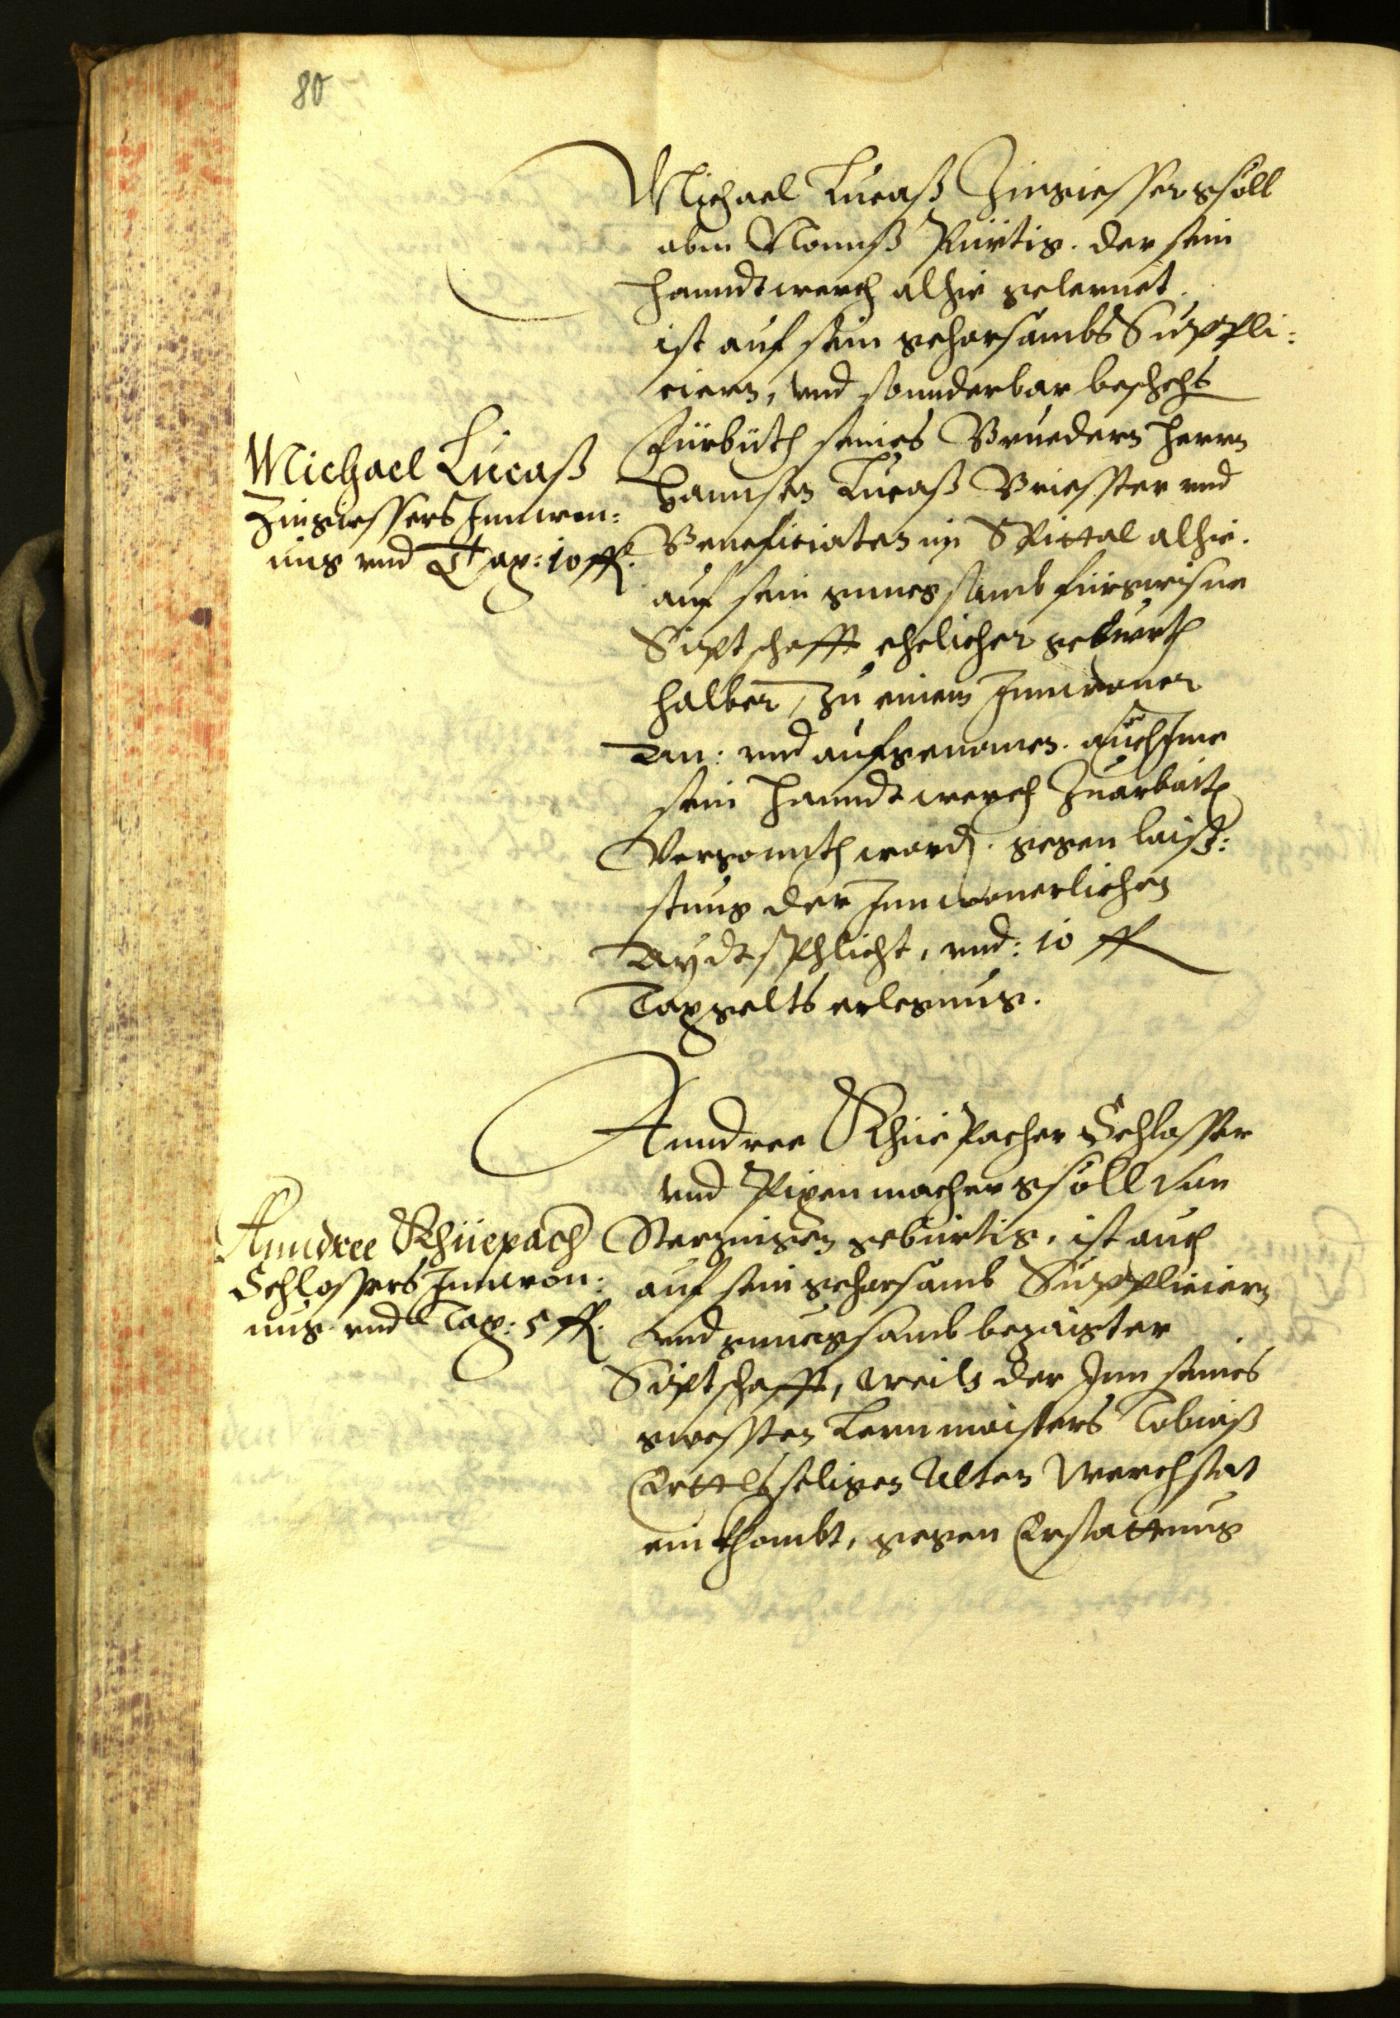 80
Michael Lucaß Zingiessergsöll
abm Nonnß Pürtig. der sein
Hanndtwerch alhie gelernet.
ist auf sein gehorsambs Suppli-
ciern, vnd sonnderbar beschehs
Fürbith seines Bruedern Herrn
Hannsen Lucaß Briesster vnd
Beneficiaten im Spittal alhie.
auf sein gnuegsamb fürgwisne
Siptschafft ehelicher geburth
halber, zu einem Innwoner
an: vnd aufgenomen. auch Ime
sein Hanndtwerch Zuarbaitn
Vergonnth word. gegen laiß-
stung der Innwonerlichen
Aydtspflicht, vnd: 10 fl
Taxgelts erlegung.
Michael Lucaß
Zingiessers Innwon-
ung vnd Tax: 10 fl.
Anndree Khüepacher Schlosser
vnd Pixenmachergsöll von
Sterzingen gebürtig, ist auch
auf sein gehorsamb Suppliciern
vnd gnuegsamb bezaigter
Siptschafft, weils der Inn seines
gwessten Lernmaisters Tobiaß
Erttls seligen Alten Werchstat
einkhombt, gegen Erstattung
Anndree Khüepach
Schlossers Innwon-
ung vnd Tax: 5 fl.